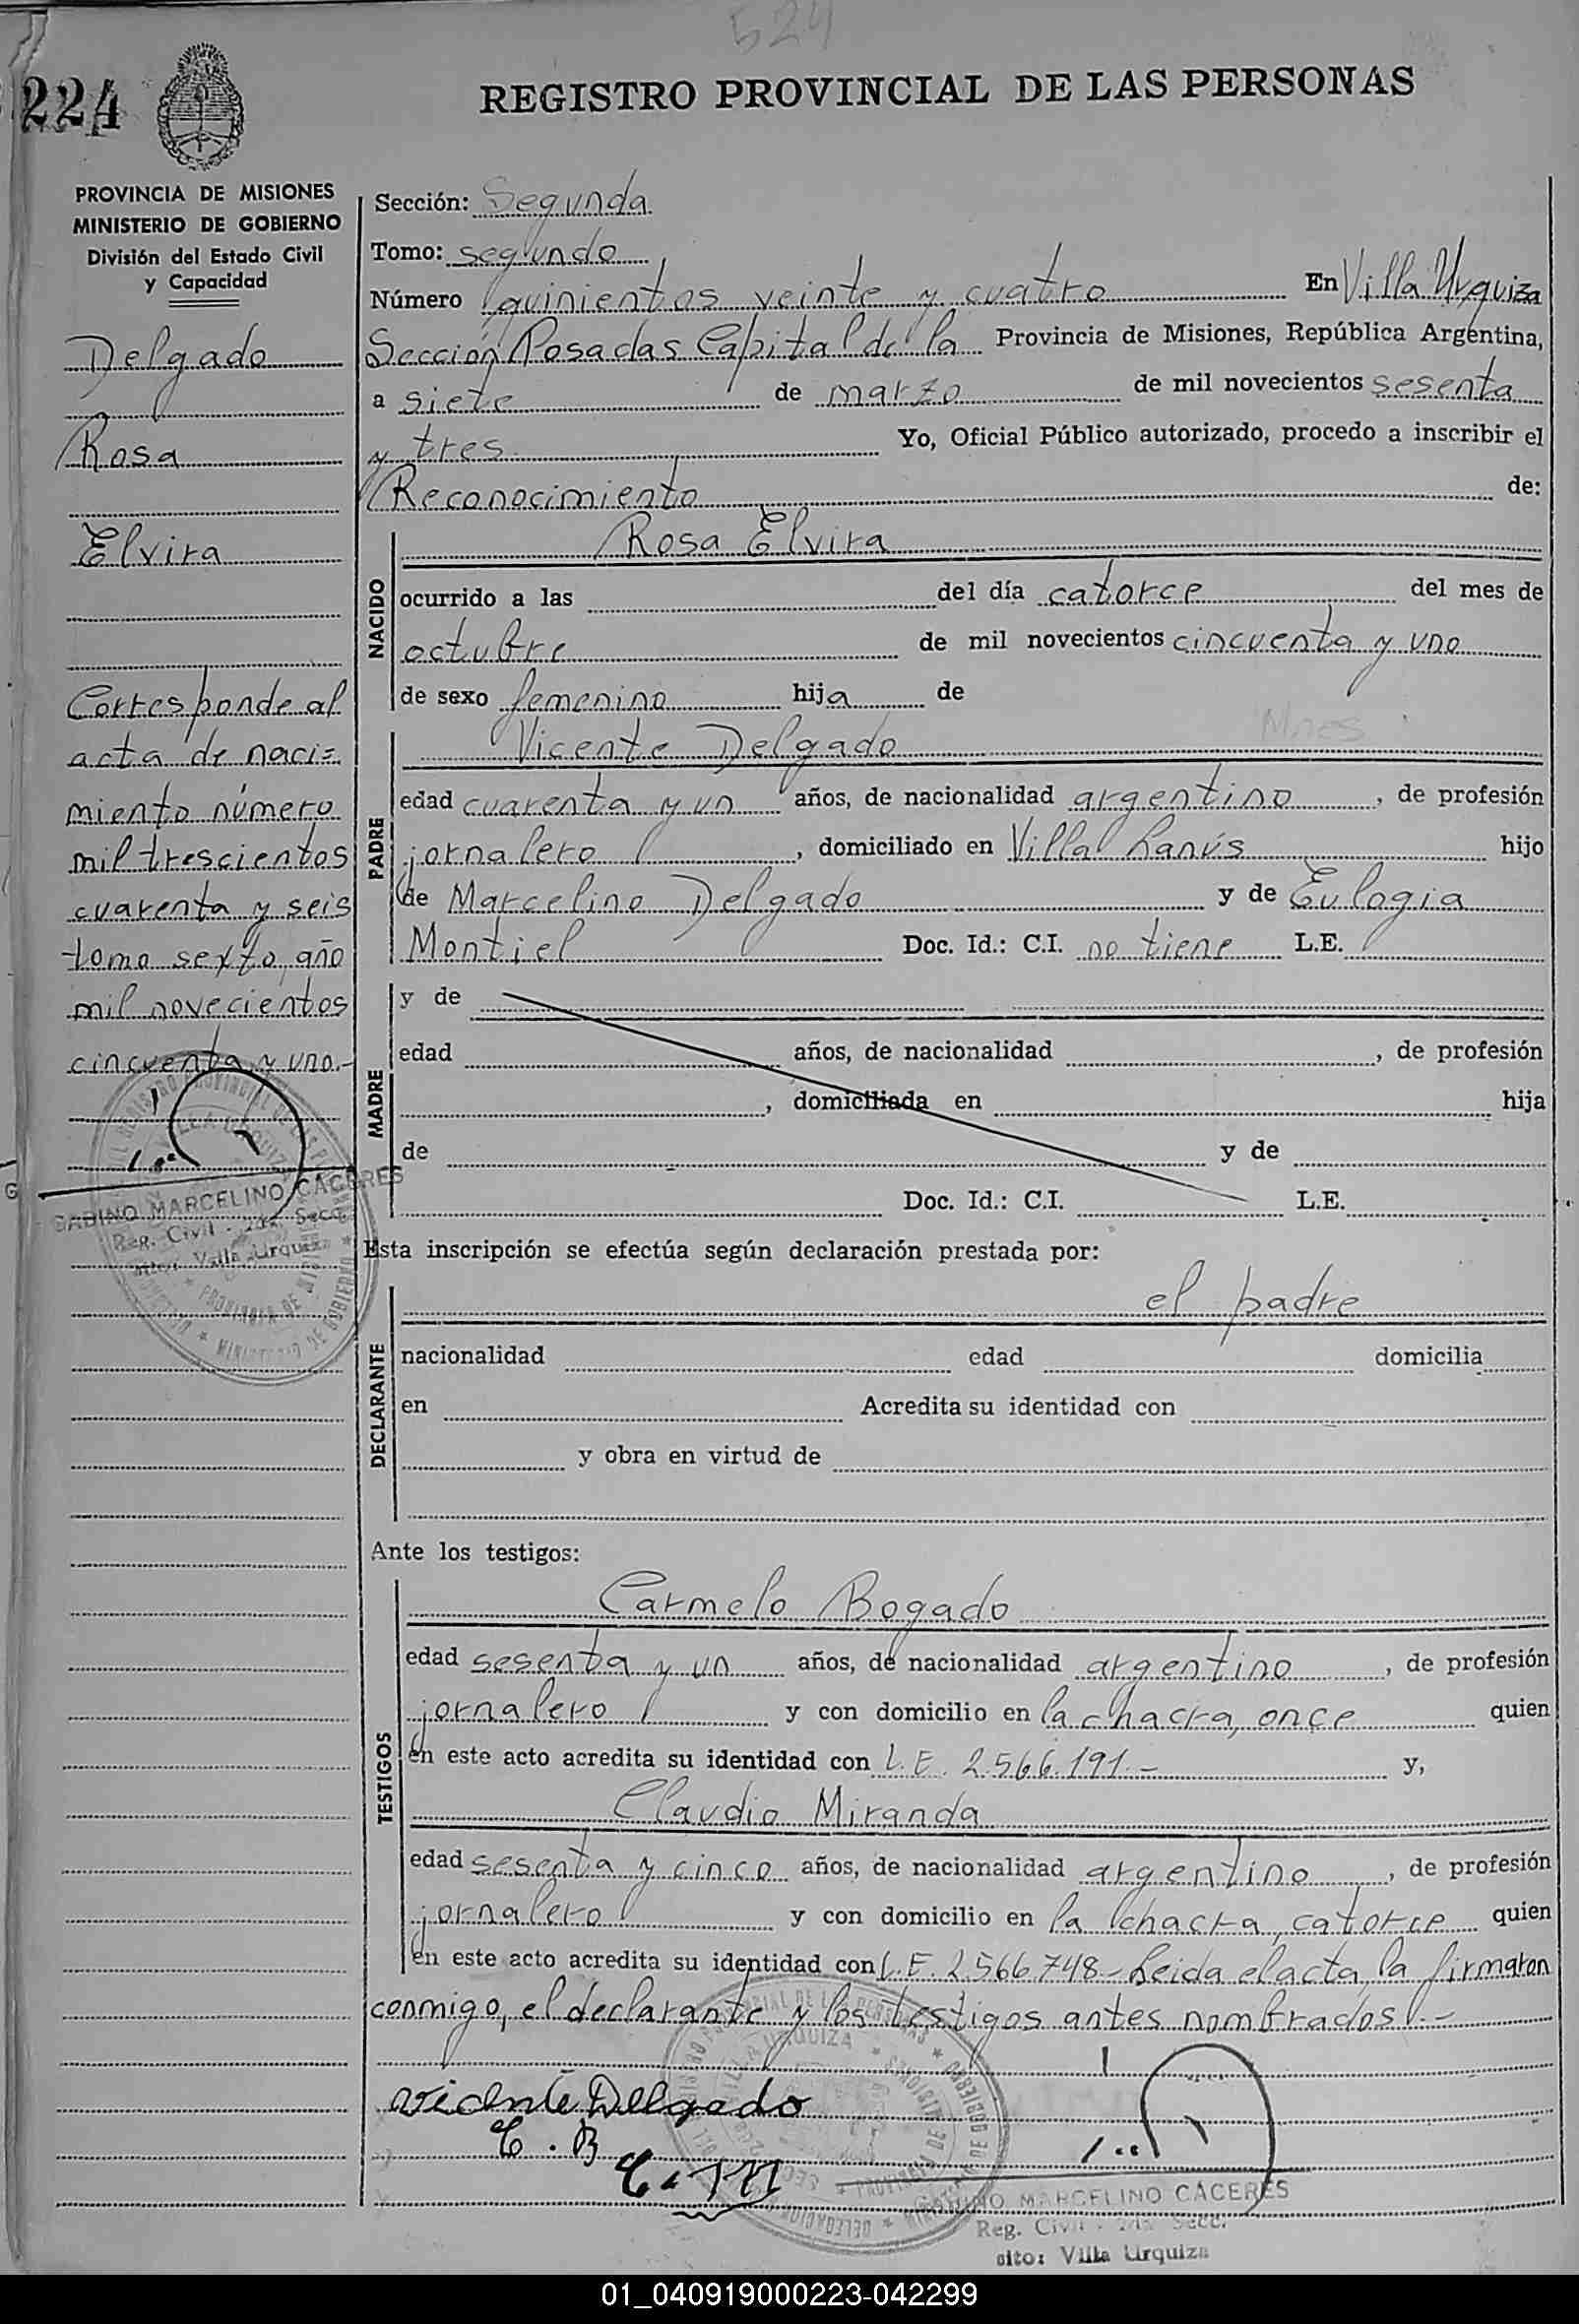 524
224
REGISTRO PROVINCIAL DE LAS PERSONAS
PROVINCIA DE MISIONES
MINISTERIO DE GOBIERNO
División del Estado Civil
y Capacidad
Delgado
Rosa
Elvira
Corresponde al
acta de naci=
miento número
mil trescientos
cuarenta y seis
tomo sexto, año
mil novecientos
cincuenta y uno.-
GABINO MARCELINO CACERES
Reg. Civil - 2da Secc.
sito: Villa Urquiza
Sección: Segunda
Tomo: segundo
Número quinientos veinte y cuatro En Villa Urquiza
Sección Posadas Capital de la Provincia de Misiones, República Argentina,
a siete de marzo de mil novecientos sesenta
y tres Yo, Oficial Público autorizado, procedo a inscribir el
Reconocimiento de:
NACIDO
Rosa Elvira
ocurrido a las del día catorce del mes de
octubre de mil novecientos cincuenta y uno
de sexo femenino hija de
PADRE
Vicente Delgado
edad cuarenta y un años, de nacionalidad argentino, de profesión
jornalero, domiciliado en Villa Lanús hijo
de Marcelino Delgado y de Eulogia
Montiel Doc. Id.: C.I. no tiene L.E.
MADRE
y de
edad años, de nacionalidad , de profesión
, domiciliada en hija
de y de
Doc. Id.: C.I. L.E.
Esta inscripción se efectúa según declaración prestada por:
DECLARANTE
el padre
nacionalidad edad domicilia
en Acredita su identidad con
y obra en virtud de
Ante los testigos:
TESTIGOS
Carmelo Bogado
edad sesenta y un años, de nacionalidad argentino, de profesión
jornalero y con domicilio en la chacra, once quien
en este acto acredita su identidad con L.E. 2.566.191.- y,
Claudio Miranda
edad sesenta y cinco años, de nacionalidad argentino, de profesión
jornalero y con domicilio en la chacra, catorce quien
en este acto acredita su identidad con L.E. 2.566.748.- Leida el acta, la firmaron
conmigo, el declarante y los testigos antes nombrados.-
Vicente Delgado
C. B
C. M
GABINO MARCELINO CACERES
Reg. Civil - 2da Secc.
sito: Villa Urquiza
01_040919000223-042299